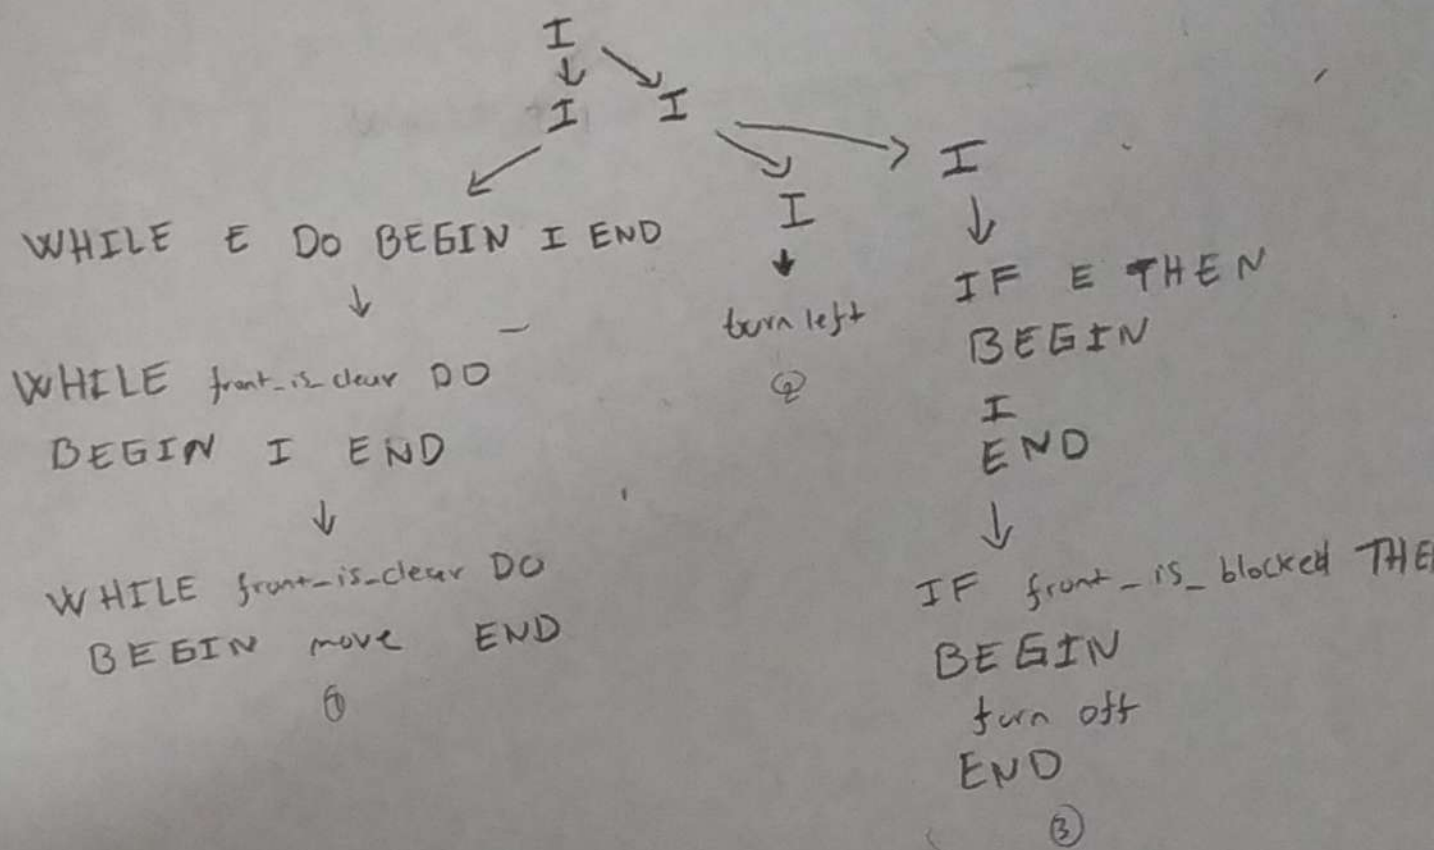 I
I I
I
I
WHILE E DO BEGIN I END
↓
WHILE front_is_clear DO
BEGIN I END
↓
WHILE front_is_clear DO
BEGIN move END
①
↓
turn left
②
↓
IF E THEN
BEGIN
I
END
↓
IF front_is_blocked THE
BEGIN
turn off
END
③